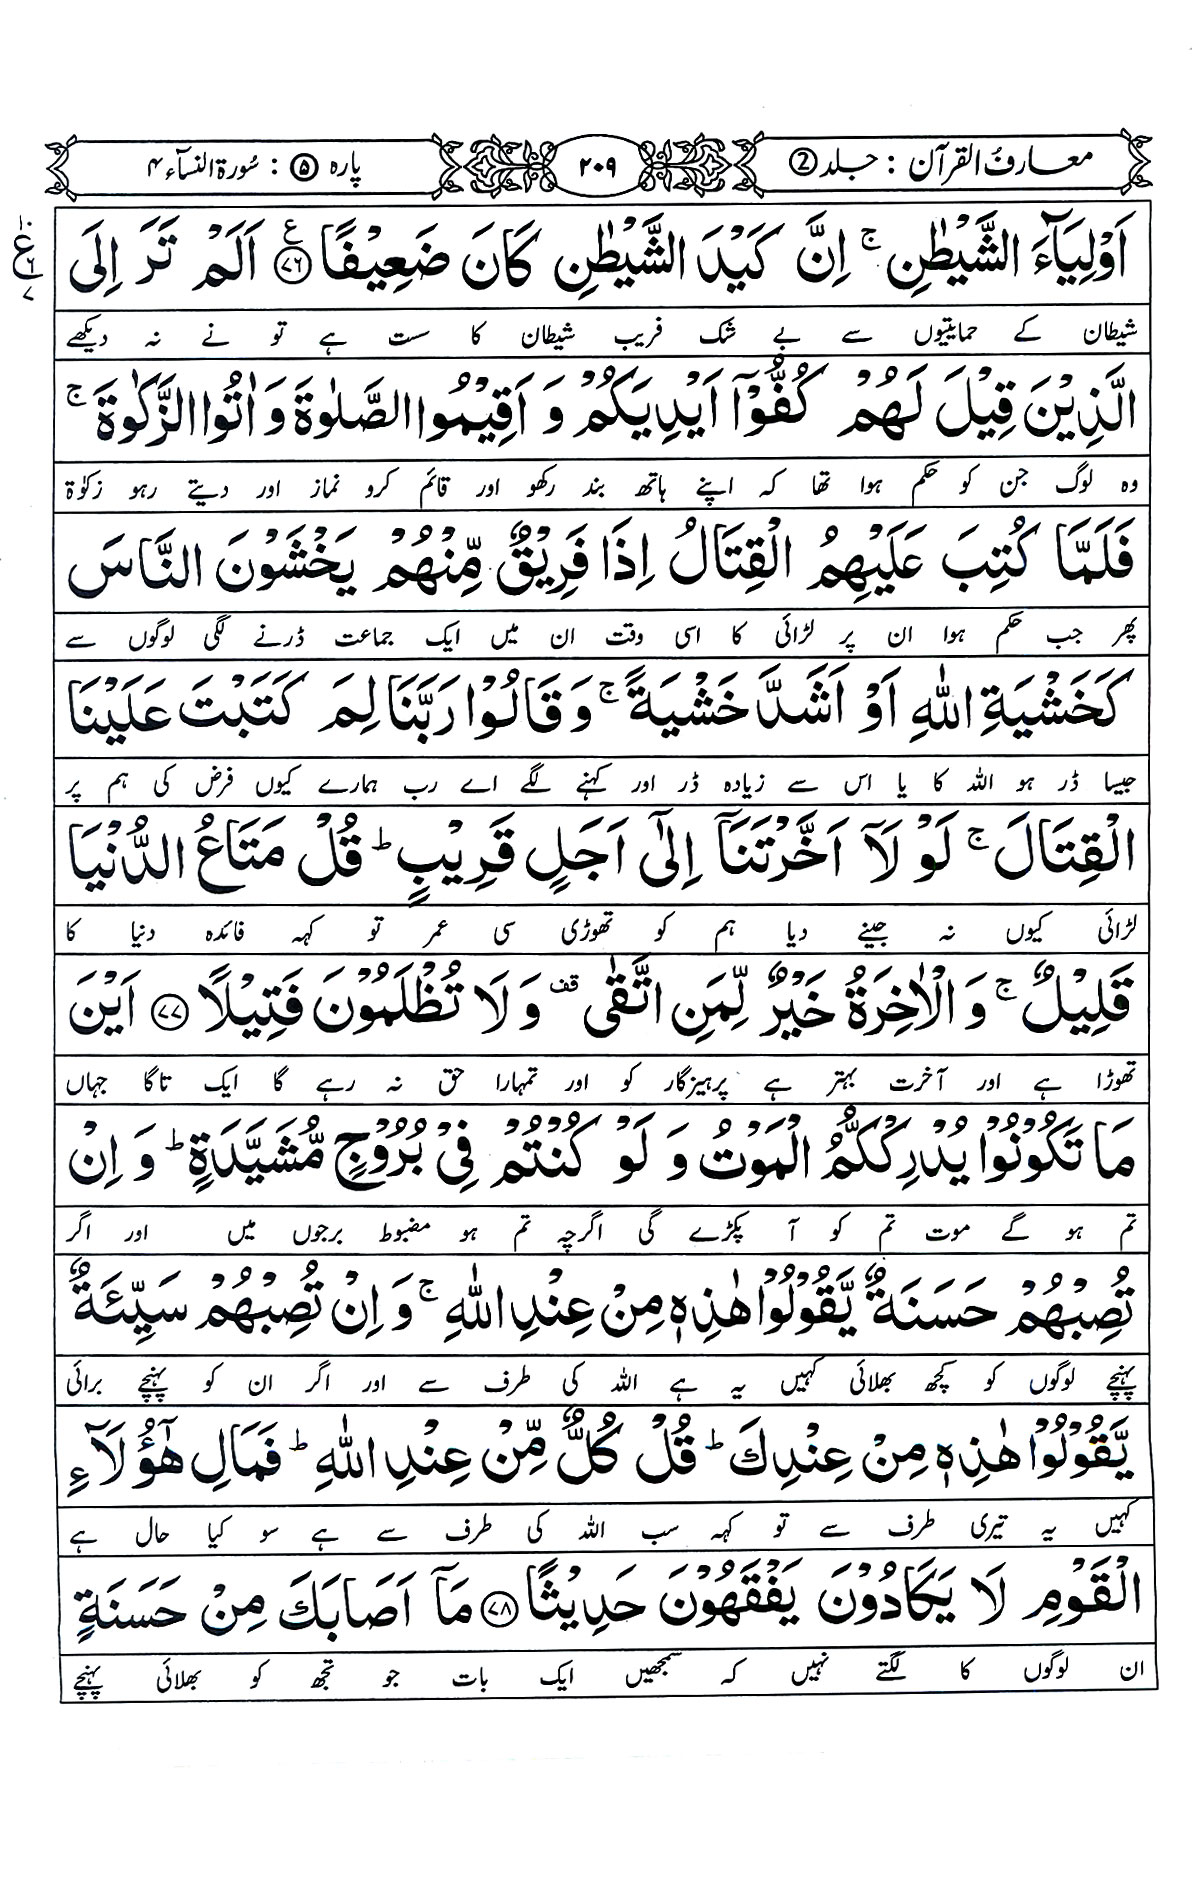 معارف القرآن : جلد ②
۲۰۹
پارہ ⑤ : سُورۃ النسآء ۴
اَوْلِیَآءَ الشَّیْطٰنِ ۚ اِنَّ کَیْدَ الشَّیْطٰنِ کَانَ ضَعِیْفًا ﴿۷۶﴾ اَلَمْ تَرَ اِلَی
شیطان کے حمایتیوں سے بے شک فریب شیطان کا سست ہے تو نے نہ دیکھے
الَّذِیْنَ قِیْلَ لَهُمْ کُفُّوْۤا اَیْدِیَکُمْ وَ اَقِیْمُوا الصَّلٰوةَ وَ اٰتُوا الزَّکٰوةَ ۚ
وہ لوگ جن کو حکم ہوا تھا کہ اپنے ہاتھ بند رکھو اور قائم کرو نماز اور دیتے رہو زکوٰۃ
فَلَمَّا کُتِبَ عَلَیْهِمُ الْقِتَالُ اِذَا فَرِیْقٌ مِّنْهُمْ یَخْشَوْنَ النَّاسَ
پھر جب حکم ہوا ان پر لڑائی کا اسی وقت ان میں ایک جماعت ڈرنے لگی لوگوں سے
کَخَشْیَةِ اللّٰهِ اَوْ اَشَدَّ خَشْیَةً ۚ وَ قَالُوْا رَبَّنَا لِمَ کَتَبْتَ عَلَیْنَا
جیسا ڈر ہو اللہ کا یا اس سے زیادہ ڈر اور کہنے لگے اے رب ہمارے کیوں فرض کی ہم پر
الْقِتَالَ ۚ لَوْ لَاۤ اَخَّرْتَنَاۤ اِلٰۤی اَجَلٍ قَرِیْبٍ ؕ قُلْ مَتَاعُ الدُّنْیَا
لڑائی کیوں نہ جینے دیا ہم کو تھوڑی سی عمر تو کہہ فائدہ دنیا کا
قَلِیْلٌ ۚ وَ الْاٰخِرَةُ خَیْرٌ لِّمَنِ اتَّقٰی ۟ قف وَ لَا تُظْلَمُوْنَ فَتِیْلًا ﴿۷۷﴾ اَیْنَ
تھوڑا ہے اور آخرت بہتر ہے پرہیزگار کو اور تمہارا حق نہ رہے گا ایک تاگا جہاں
مَا تَکُوْنُوْا یُدْرِکْکُّمُ الْمَوْتُ وَ لَوْ کُنْتُمْ فِیْ بُرُوْجٍ مُّشَیَّدَةٍ ؕ وَ اِنْ
تم ہو گے موت تم کو آ پکڑے گی اگرچہ تم ہو مضبوط برجوں میں اور اگر
تُصِبْهُمْ حَسَنَةٌ یَّقُوْلُوْا هٰذِهٖ مِنْ عِنْدِ اللّٰهِ ۚ وَ اِنْ تُصِبْهُمْ سَیِّئَةٌ
پہنچے لوگوں کو کچھ بھلائی کہیں یہ ہے اللہ کی طرف سے اور اگر ان کو پہنچے برائی
یَّقُوْلُوْا هٰذِهٖ مِنْ عِنْدِكَ ؕ قُلْ کُلٌّ مِّنْ عِنْدِ اللّٰهِ ؕ فَمَالِ هٰۤؤُلَآءِ
کہیں یہ تیری طرف سے تو کہہ سب اللہ کی طرف سے ہے سو کیا حال ہے
الْقَوْمِ لَا یَکَادُوْنَ یَفْقَهُوْنَ حَدِیْثًا ﴿۷۸﴾ مَاۤ اَصَابَكَ مِنْ حَسَنَةٍ
ان لوگوں کا لگتے نہیں کہ سمجھیں ایک بات جو تجھ کو بھلائی پہنچے